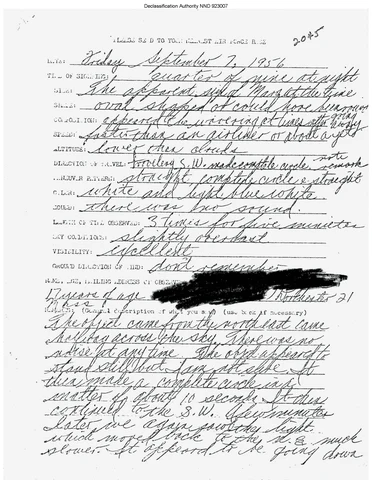 Declassification Authority NND 923007
PLEASE SEND TO YOUR NEAREST AIR FORCE BASE
2045
DATE: Friday September 7, 1956
TIME OF SIGHTING: quarter of nine at night
SIZE: The apparent size of Mars at the time
SHAPE: oval shaped or could have been
COMPOSITION: appeared to be wavering at times
SPEED: faster than an airliner or about a jet
ALTITUDE: lower then clouds
DIRECTION OF TRAVEL: Traveling S.W. made complete circle note remark
MANEUVER PATTERN: straight, complete circle & straight
COLOR: white and light blue white
SOUND: there was no sound.
LENGTH OF TIME OBSERVED: 3 times for five minutes
SKY CONDITIONS: slightly overcast
VISIBILITY: excellent
GROUND DIRECTION OF WIND: don't remember
NAME, AGE, MAILING ADDRESS OF OBSERVER
17 years of age Dorchester 21
Mass.
REMARKS: (General description of what you saw) (use back if necessary)
The object came from the northeast came
halfway across the sky. There was no
noise at any time. The object appeared to
stand still but I am not sure. It
then made a complete circle in a
matter of about 10 seconds. It then
continued to the S.W. A few minutes
later we again saw the light
which moved back to the N.E. much
slower. It appeared to be going down